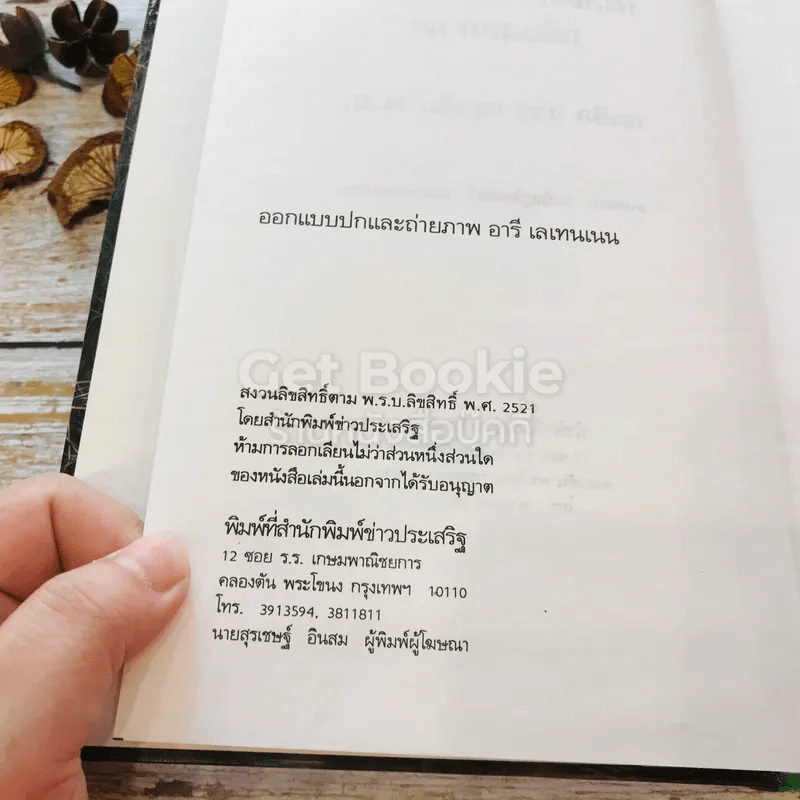 ออกแบบปกและถ่ายภาพ อารี เลเทนเนน
Get Bookie
ร้านหนังสือบุคกี้
สงวนลิขสิทธิ์ตาม พ.ร.บ.ลิขสิทธิ์ พ.ศ. 2521
โดยสำนักพิมพ์ข่าวประเสริฐ
ห้ามการลอกเลียนไม่ว่าส่วนหนึ่งส่วนใด
ของหนังสือเล่มนี้นอกจากได้รับอนุญาต
พิมพ์ที่สำนักพิมพ์ข่าวประเสริฐ
12 ซอย ร.ร. เกษมพาณิชยการ
คลองตัน พระโขนง กรุงเทพฯ 10110
โทร. 3913594, 3811811
นายสุรเชษฐ์ อินสม ผู้พิมพ์ผู้โฆษณา